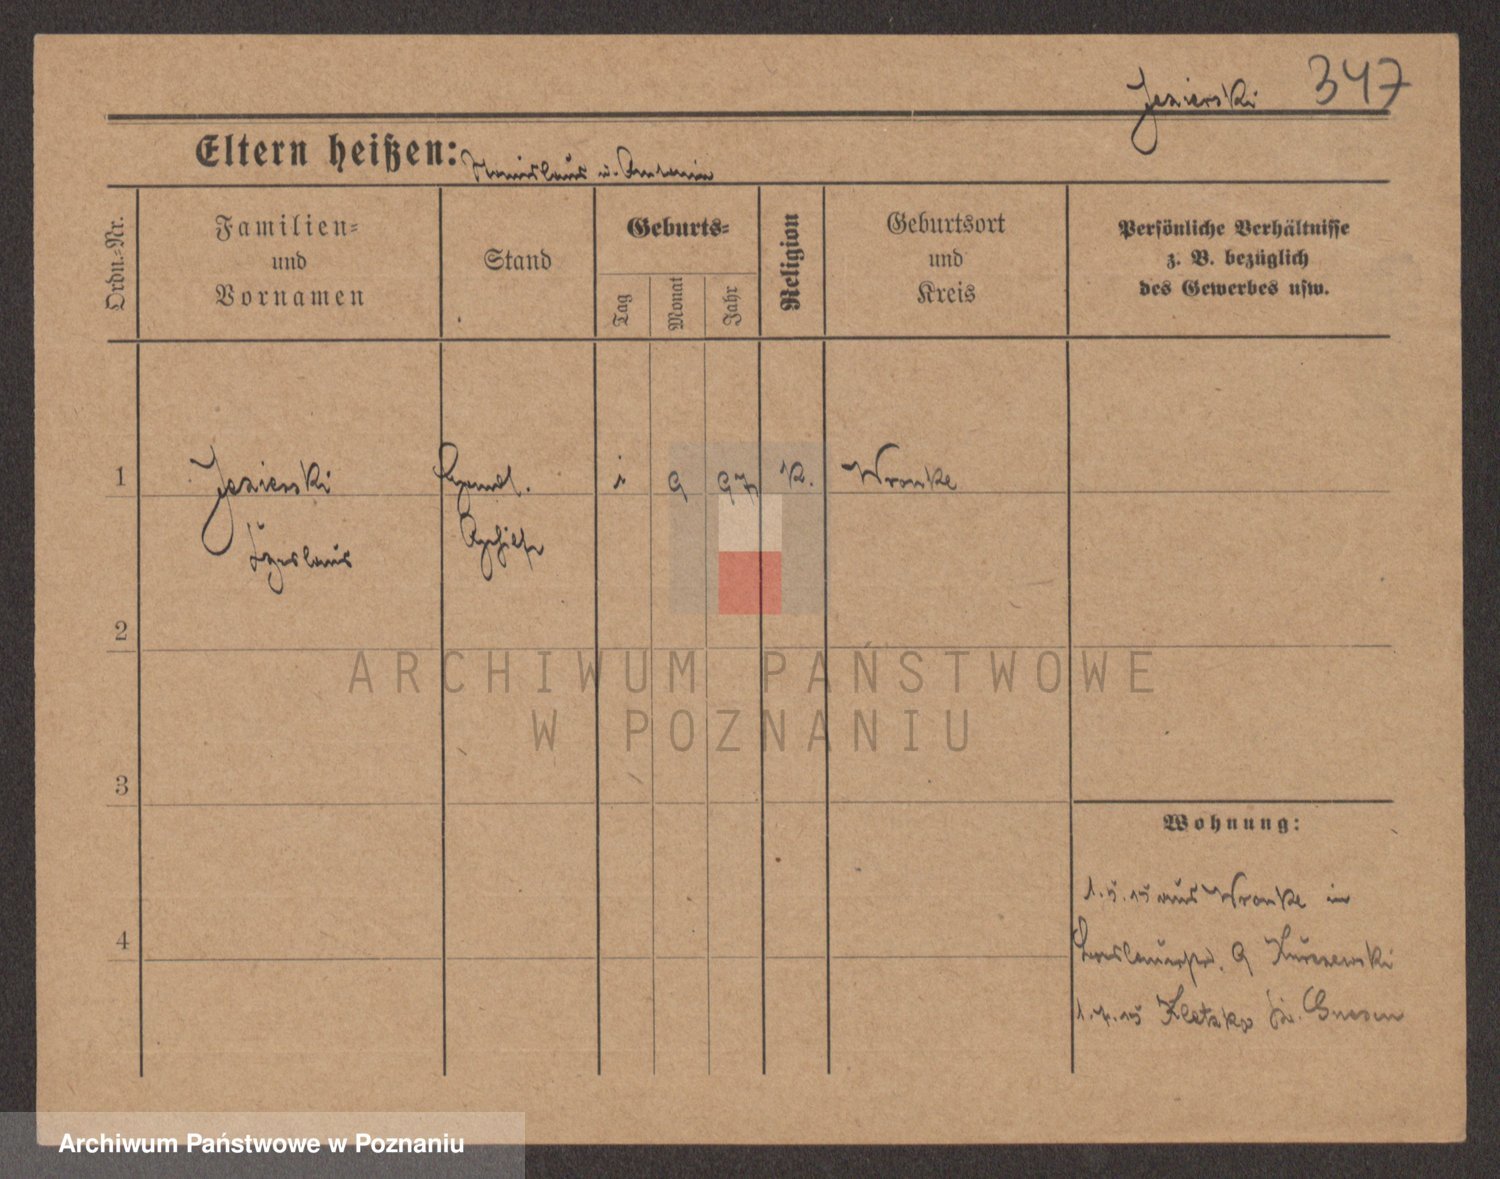 Jezierski 347
Eltern heißen: Stanislaus u. Antonie
Ordn.=Nr.
Familien=
und
Vornamen
Stand
Geburts=
Tag
Monat
Jahr
Religion
Geburtsort
und
Kreis
Persönliche Verhältnisse
z. B. bezüglich
des Gewerbes usw.
1 Jezierski 9 97 K. Wronke
2
3
4
Wohnung:
1.5.15 aus Wronke in
Breslauerstr. 9
1.7.15 Kletzko Kr. Gnesen
ARCHIWUM PAŃSTWOWE
W POZNANIU
Archiwum Państwowe w Poznaniu